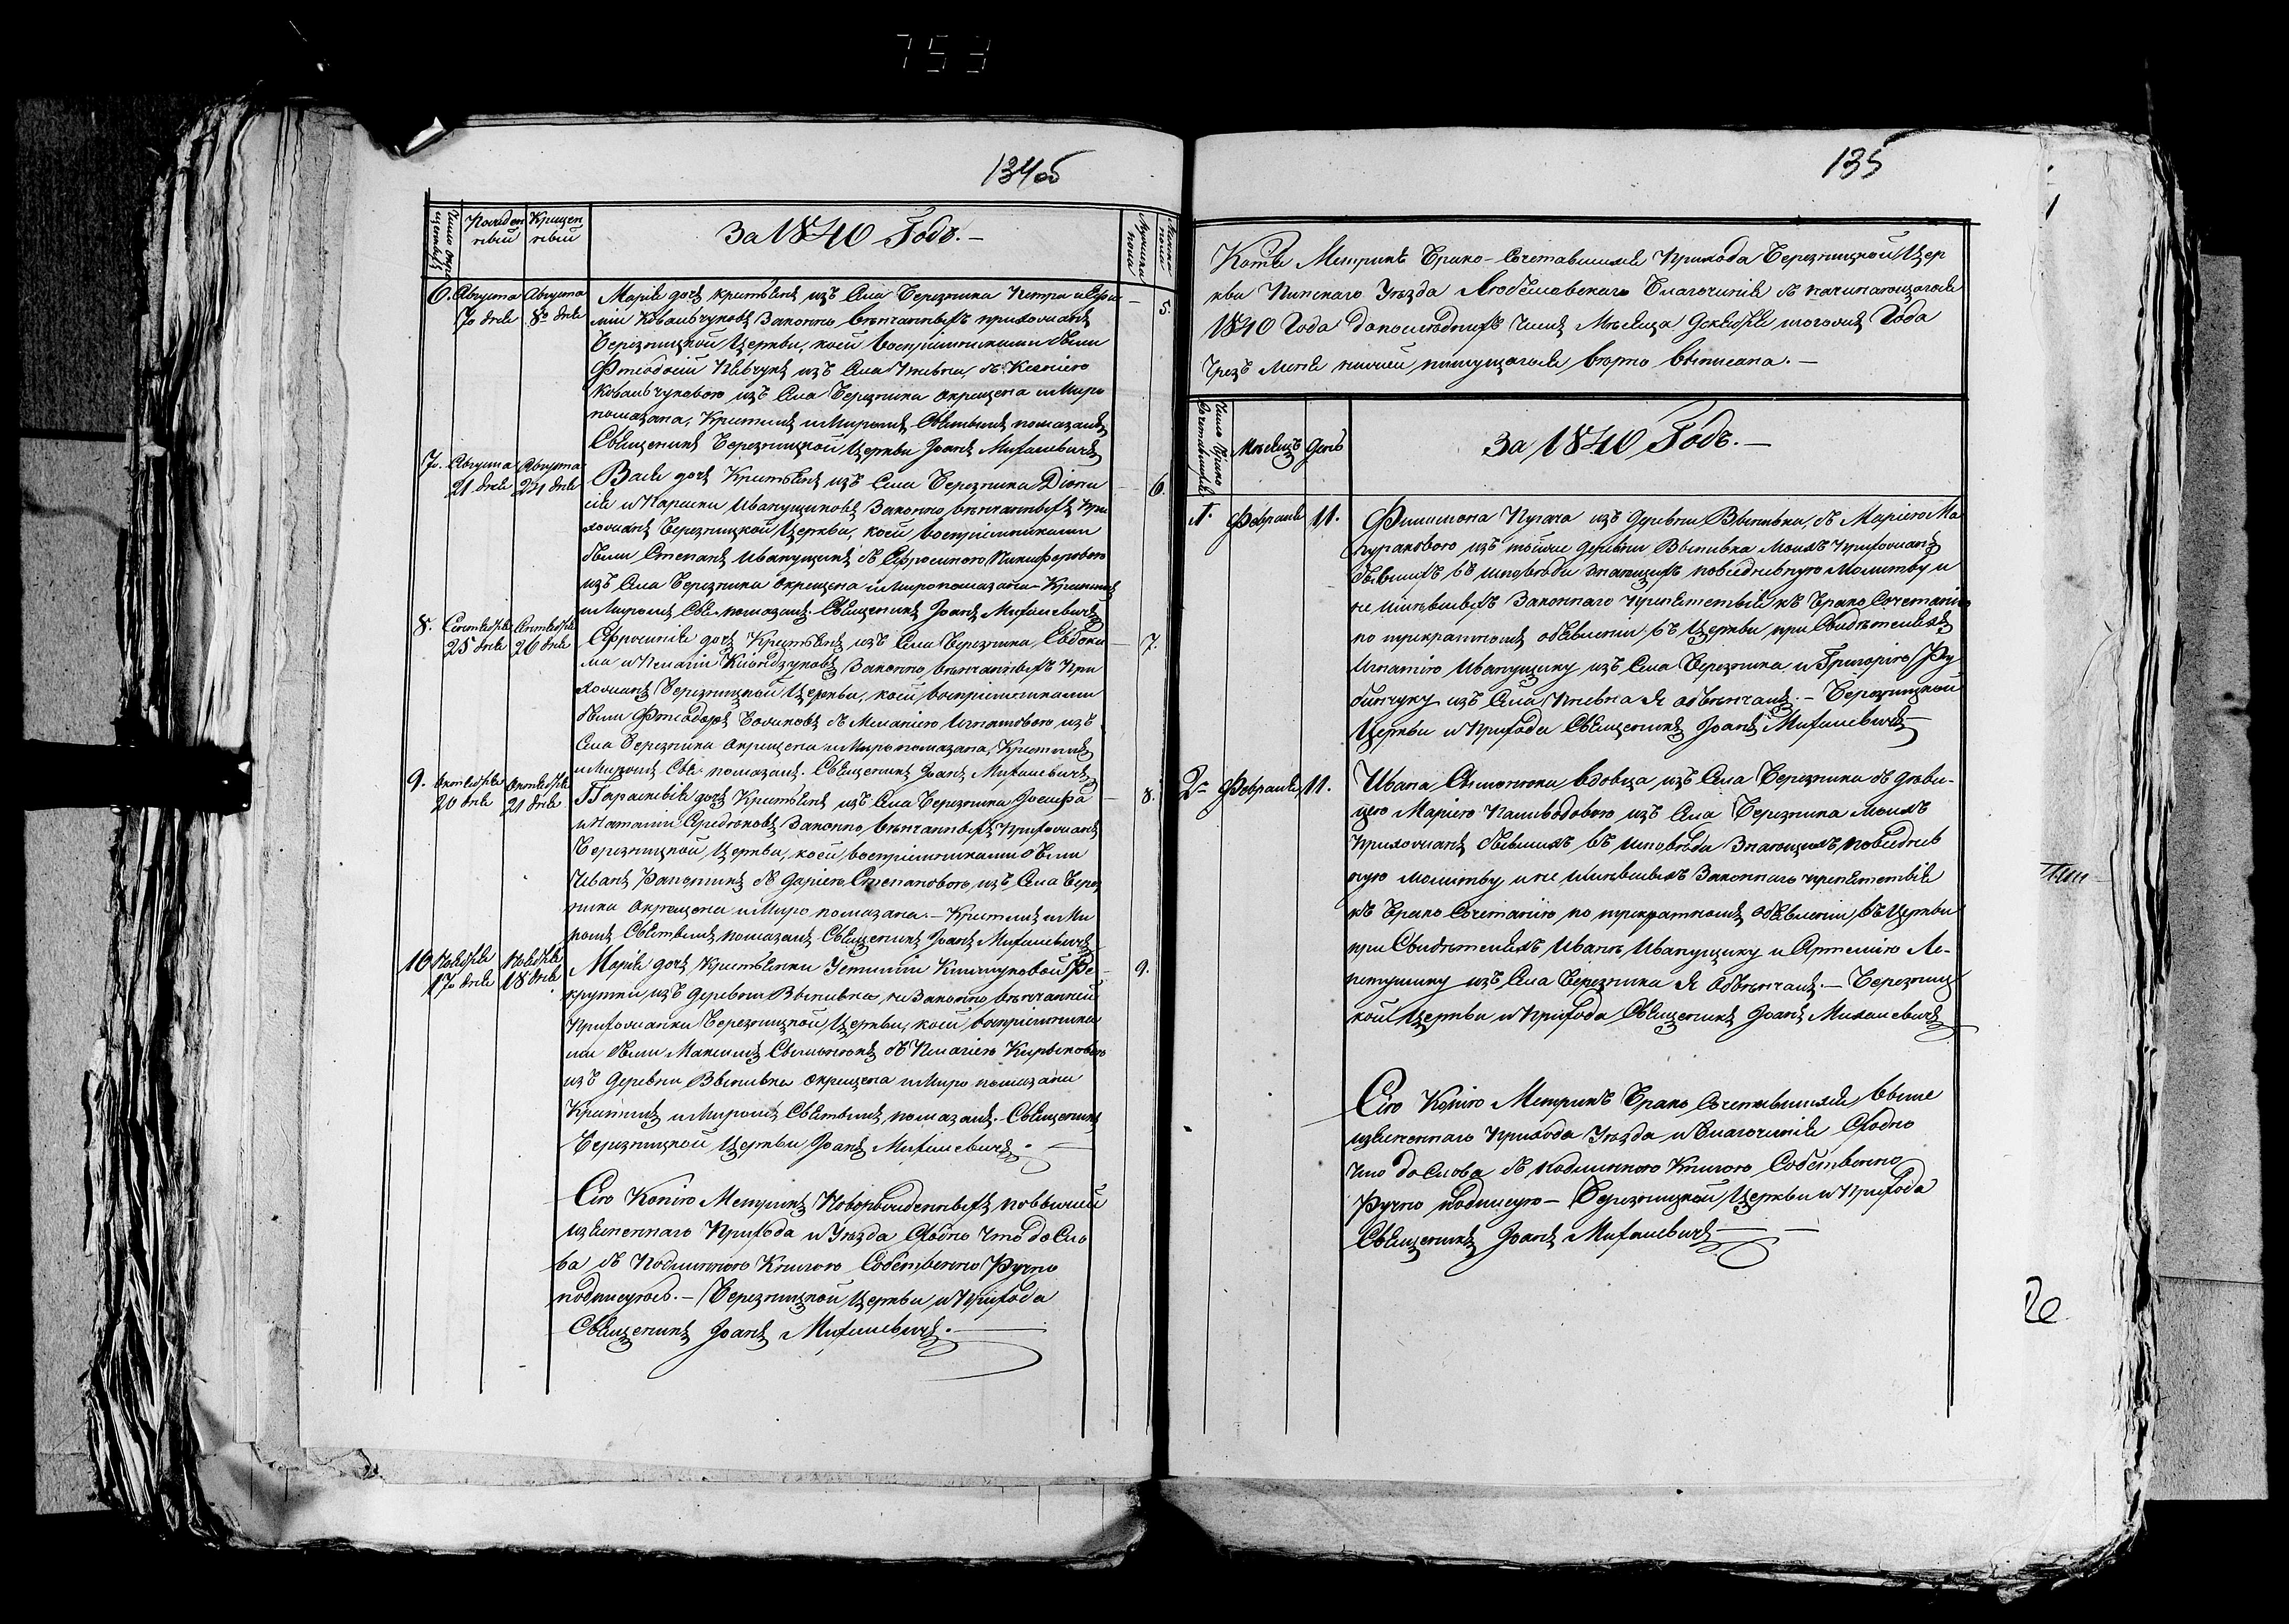 753
134об
Рожден
ный
Крщен
ный
За 1840 Годъ. —
6.
Августа
7го дня
Августа
8го дня
Марія дочь крестьянъ изъ Села Березника Петра и
Ковальчуковъ Законно вѣнчанныхъ прихожанъ
Березницкой Церкви, коей воспріимниками были
изъ Села съ Ксенiею
Ковальчуковою изъ Села Березника окрещена и Миро
помазана, Крестилъ и Миромъ Святымъ помазалъ
Священникъ Березницкой Церкви Іоанъ Михалевичъ
5.
7.
Августа
21 дня
Августа
дня
Васа дочь Крестьянъ изъ Села Березника Діони
сія и Параски Иванущиковъ Законно вѣнчанныхъ При
хожанъ Березницкой Церкви, коей воспріимниками
были Степанъ Иванущикъ съ Ефросиніою Никифоровою
изъ Села Березника окрещена и Миропомазана — Крестилъ
и Миромъ Свя. помазалъ. Священникъ Іоанъ Михалевичъ
6.
8.
Сентября
25 дня
Сентября
26 дня
Ефросинія дочь Крестьянъ изъ Села Березника, Евдоки
ма и Пелагіи Законно вѣнчанныхъ При
хожанъ Березницкой Церкви, коей воспріимниками
были Фтеодоръ съ Меланіею Игнатовою изъ
Села Березника окрещена и Миропомазана, Крестилъ
и Миромъ Свя. помазалъ. Священникъ Іоанъ Михалевичъ
7.
9.
Октября
20 дня
Октября
21 дня
Параскевія дочь Крестьянъ изъ Села Березника Іосифа
и Наталіи Законно вѣнчанныхъ Прихожанъ
Березницкой Церкви, коей воспріимниками были
Иванъ съ Даріею Степановою изъ Села Берез
ника окрещена и Миро помазана. — Крестилъ и Ми
ромъ Святымъ помазалъ Священникъ Іоанъ Михалевичъ
8.
10
Ноября
17го дня
Ноября
18 дня
Марія дочь Крестьянки Устиніи Климчуковой Ре
крутки изъ Деревни Вы­пивка, не Законно вѣнчанной
Прихожанки Березницкой Церкви, коей воспріимника
ми были Максимъ Свымонюкъ съ Пелагіею
изъ Деревни Выпивка окрещена и Миро помазана
Крестилъ и Миромъ Святымъ помазалъ. Священникъ
Березницкой Церкви Іоанъ Михалевичъ. —
9.
Сію Копію Метрикъ Новорожденныхъ
изъясненнаго Прихода и Уѣзда Сходно что до Сло
ва съ Подлинною Книгою Собственно Ручно
подписуюсь. — Березницкой Церкви и Прихода
Священникъ Іоанъ Михалевичъ. —
135
Копія Метрикъ Брако-Сочетавшихся Прихода Березницкой Цер
кви Пинскаго Уѣзда Любешовскаго Благочинія съ начинающагося
1840 Года до послѣднихъ Чиселъ Мѣсяца Декабря тогожъ Года
Чрезъ Меня нижей пишущагося вѣрно выписана. —
Число Брако
Сочетавшихся
Мѣсяцъ
День
За 1840 Годъ. —
1.
Февраля
11.
Филимона Пугача изъ Деревни Выпивка, съ Маріею Ма
зураковою изъ тойже Деревни Выпивка Моихъ Прихожанъ
бывшихъ въ исповѣди знающихъ повседневную Молитву и
не имѣвшыхъ Законнаго Препятствія къ Брако Сочетанію
по трикратномъ объявленіи въ Церкви при Свидѣтеляхъ
Игнатію Иванущику изъ Села Березника и Григорію
изъ Села Я обвѣнчалъ. — Березницкой
Церкви и Прихода Священникъ Іоанъ Михалевичъ —
2.
Февраля
11.
Ивана Свымонюка вдовца изъ Села Березника съ дѣви-
цею Маріею Паливодовою изъ Села Березника Моихъ
Прихожанъ бывшихъ въ исповѣди Знающихъ повседнев
ную молитву и не имѣвшыхъ Законнаго препятствія
къ Брако Сочетанію по трикратномъ объявленіи въ Церкви
при Свидѣтеляхъ Иванѣ Иванущику и Артемію Ле-
петушику изъ Села Березника Я Обвѣнчалъ. — Березниц
кой Церкви и Прихода Священникъ Іоанъ Михалевичъ
Сію Копію Метрикъ Брако Сочетавшихся выше
изъясненнаго Прихода Уѣзда и Благочинія Сходно
что до Слова съ Подлинною Книгою Собственно
Ручно подписую — Березницкой Церкви и Прихода
Священникъ Іоанъ Михалевичъ —